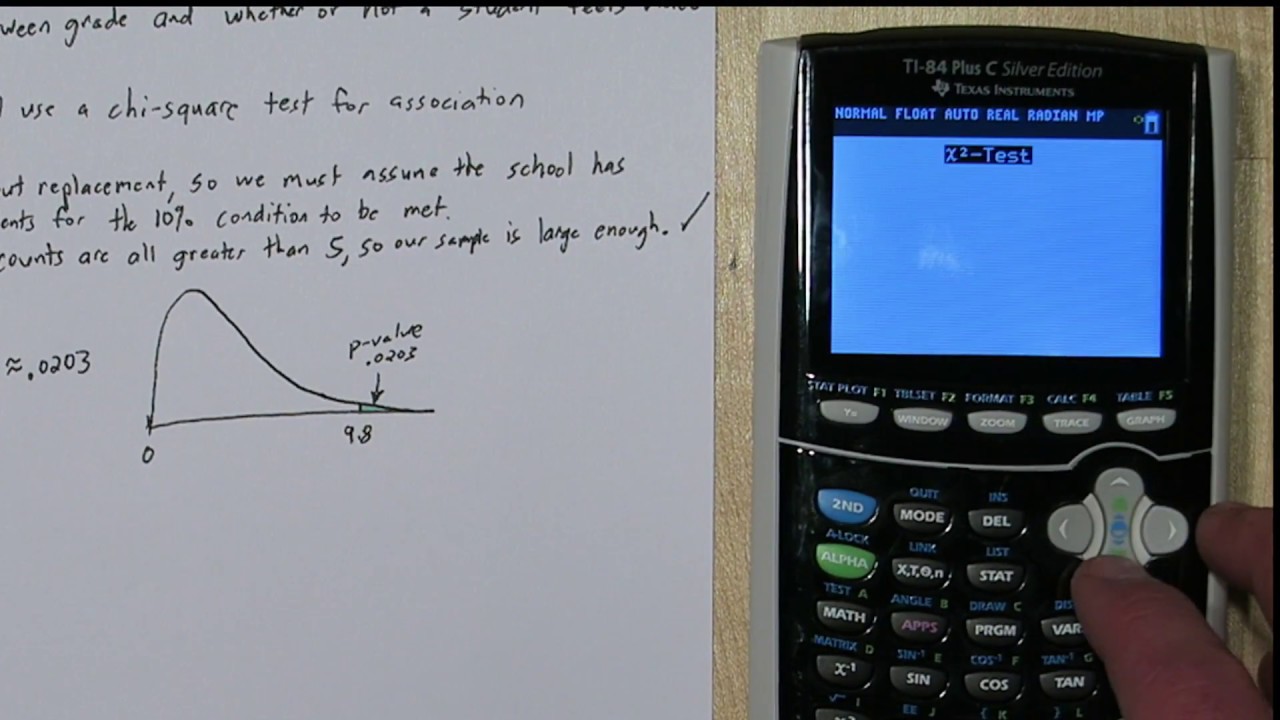 ween grade and whether or not a student feels
l use a chi-square test for association
ut replacement, so we must assume the school has
ents for the 10% condition to be met.
counts are all greater than 5, so our sample is large enough. ✓
≈.0203
p-value
.0203
9.8
0
TI-84 Plus C Silver Edition
TEXAS INSTRUMENTS
NORMAL FLOAT AUTO REAL RADIAN MP
χ²-Test
STAT PLOT F1 TBLSET F2 FORMAT F3 CALC F4 TABLE F5
Y= WINDOW ZOOM TRACE GRAPH
QUIT INS
2ND MODE DEL
A-LOCK LINK LIST
ALPHA X,T,Θ,n STAT
TEST A ANGLE B DRAW C DIS
MATH APPS PRGM VAR
MATRIX D SIN⁻¹ E COS⁻¹ F TAN⁻¹ G
x⁻¹ SIN COS TAN
√ I EE J { K } L
x²